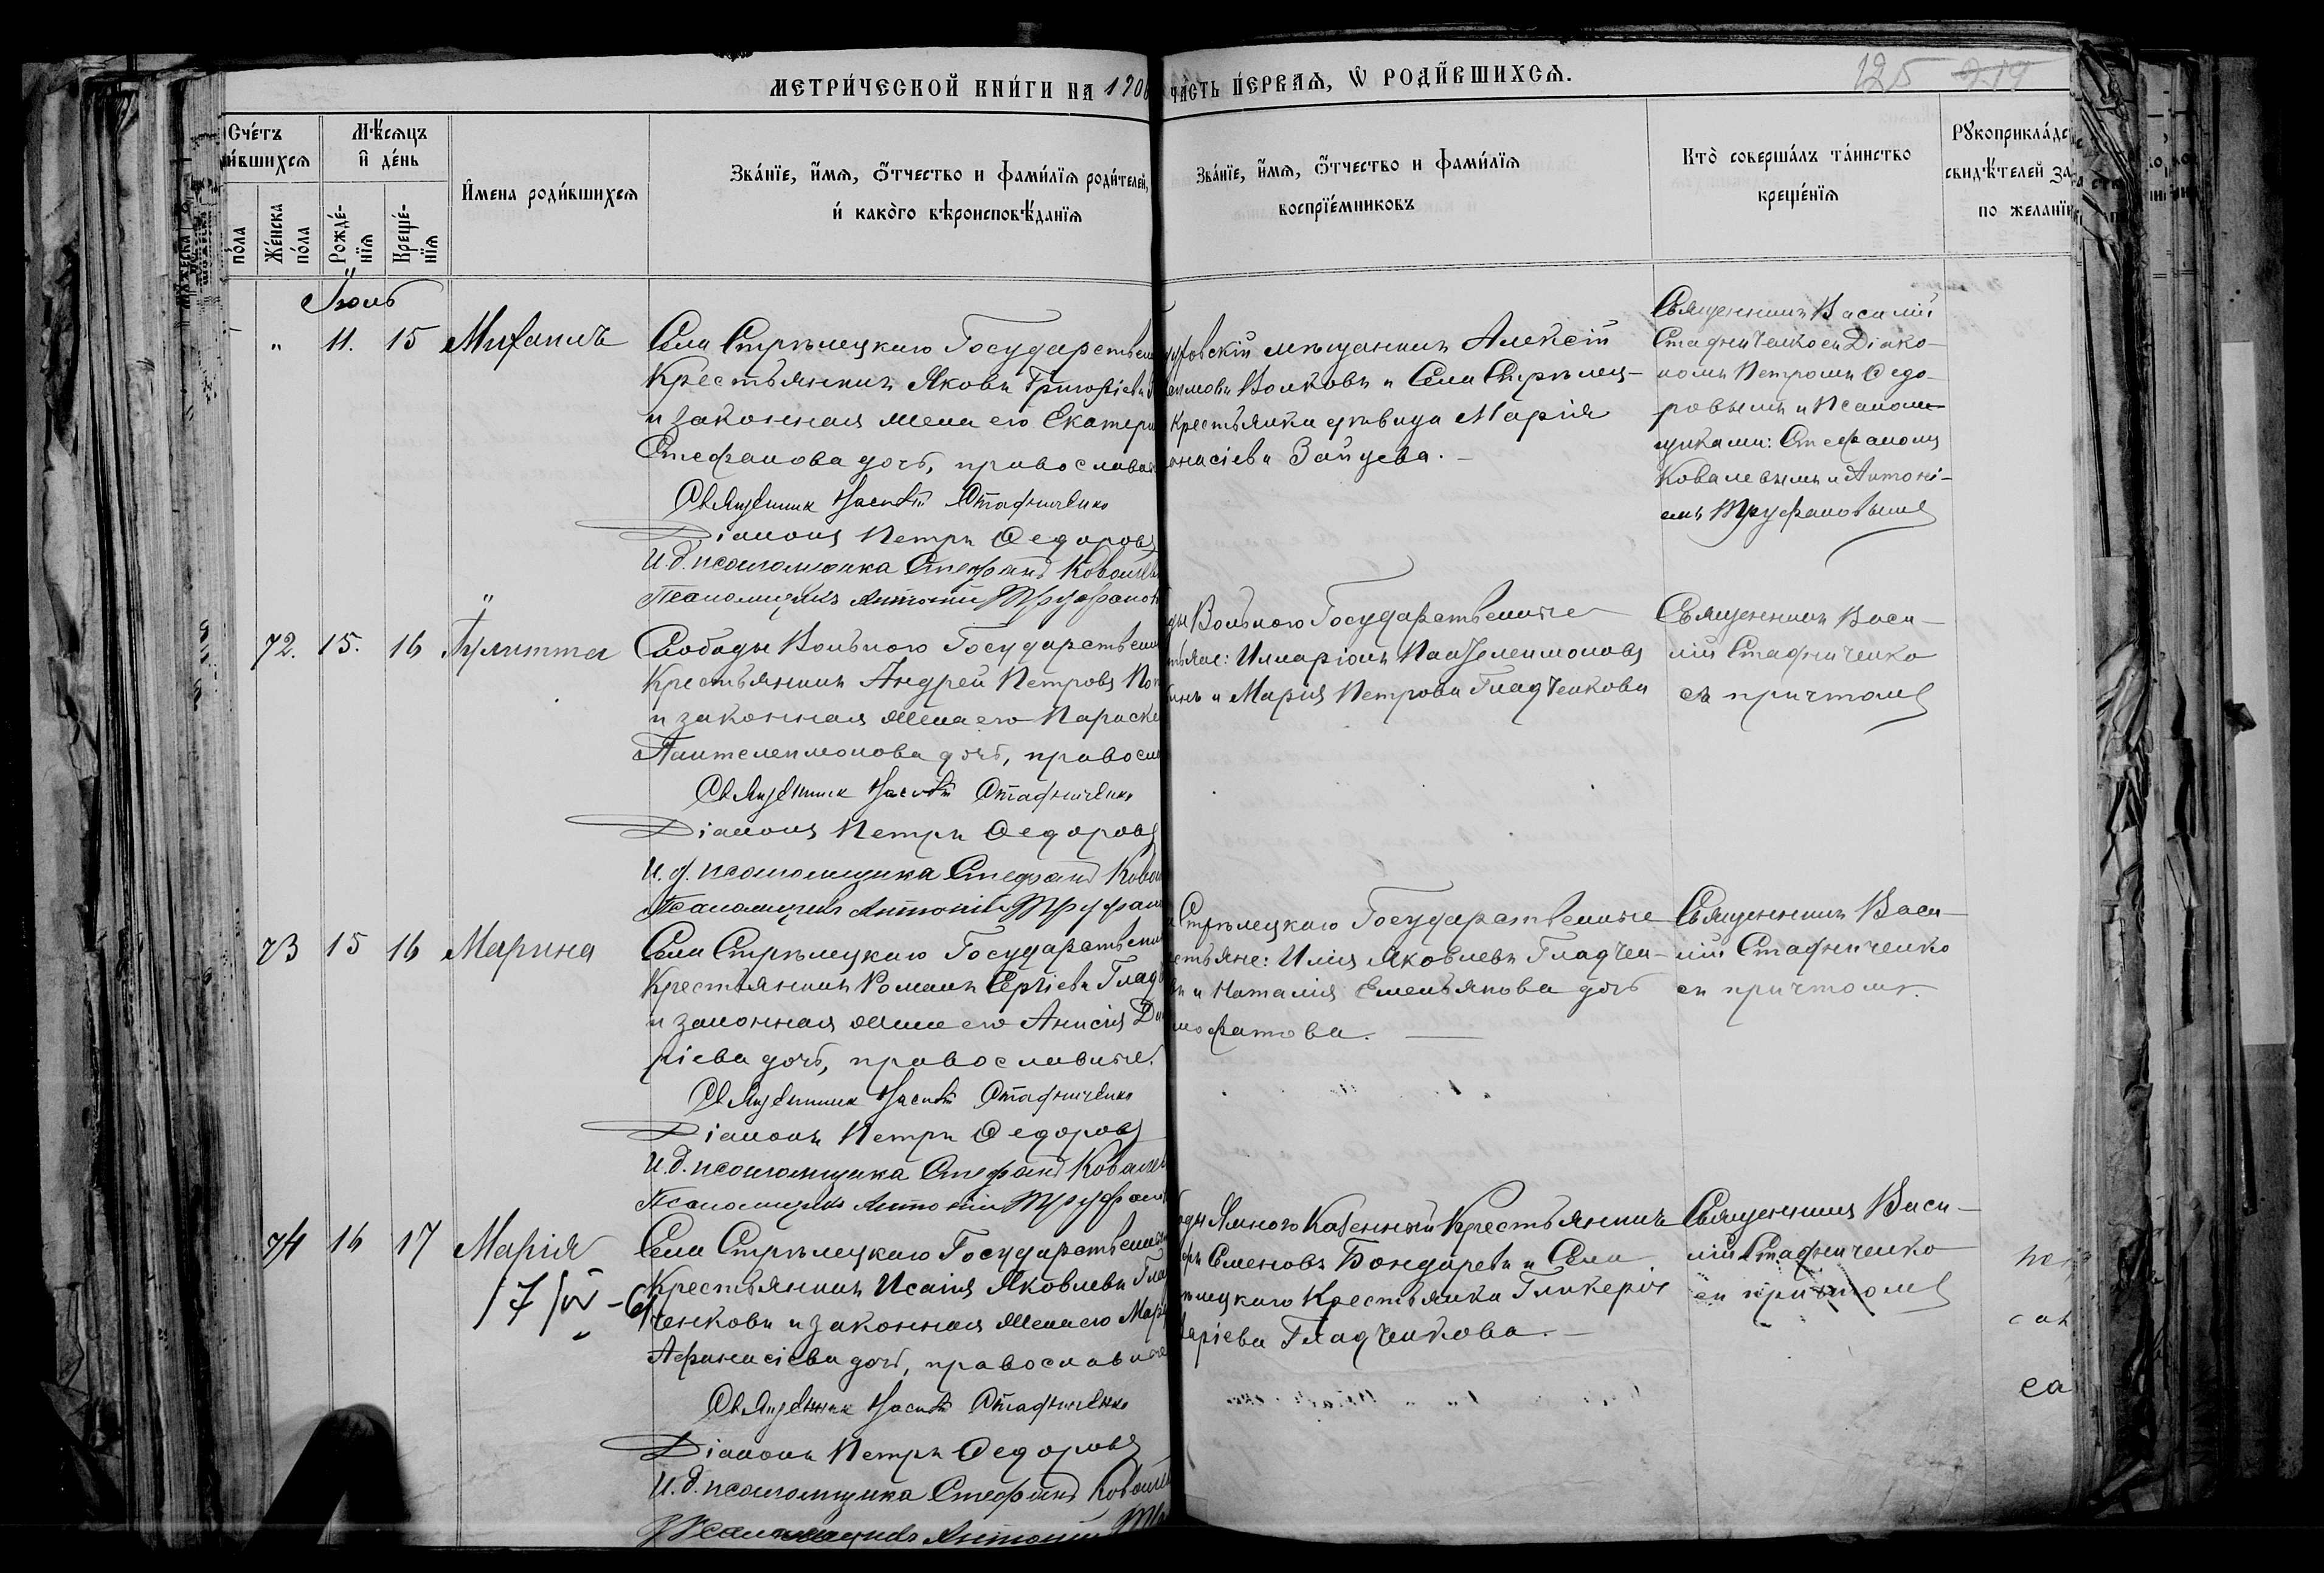 МЕТРИ́ЧЕСКОЙ КНИ́ГИ НА 190
ЧА́СТЬ ПЕ́РВАЯ, Ѡ РОДИ́ВШИХСЯ.
125 214
Сче́тъ
и́вшихся
Мѣ́сяцъ
и҆ де́нь
по́ла
Же́нска по́ла
Рожде́нїя
Креще́нїя
И҆мена роди́вшихся
Зва́нїе, и҆́мя, о҆́тчество и фами́лїя роди́телей,
и҆ како́го вѣроисповѣ́данїя
Зва́нїе, и҆́мя, о҆́тчество и фами́лїя
воспрїе́мниковъ
Кто̀ соверша́лъ та́инство
креще́нїя
Рꙋкоприкла́дс
свидѣ́телей за
по жела́нїю
Іюль
" 11. 15 Михаилъ
Села Стрѣлецкаго Государствен
Крестьянинъ Яковъ Григоріевъ
и законная жена его Екатери
Стефанова дочь, православн
Священник Василій Стафниченко
Діаконъ Петръ Ѳедоровъ
И. д. псаломщика Стефанъ Ковалев
Псаломщикъ Антоній Труфанов
овскій мѣщанинъ Алексій
имовъ Волковъ и Села Стрѣлец-
Крестьянка дѣвица Марія
анасіева Зайцева.
Священникъ Василій
Стафниченко съ Діако-
номъ Петромъ Ѳедо-
ровымъ и Псалом-
щиками: Стефаномъ
Ковалевымъ и Антоні-
емъ Труфановымъ
72. 15. 16 Іулитта
Слободы Вольного Государствен
Крестьянинъ Андрей Петровъ По
и законная жена его Параске
Пантелеимонова дочь, правосла
Священник Василій Стафниченко
Діаконъ Петръ Ѳедоровъ
И. д. псаломщика Стефанъ Ковал
Псаломщикъ Антоній Труфан
ды Вольного Государственные
тьяне: Илларіонъ Пантелеимоновъ
инъ и Марія Петрова Гладченкова
Священникъ Васи-
лій Стафниченко
съ причтомъ
73 15 16 Марина
Села Стрѣлецкаго Государствен
Крестьянинъ Романъ Сергіевъ Глад
и законная жена его Анисія Ди
ріева дочь, православные.
Священник Василій Стафниченко
Діаконъ Петръ Ѳедоровъ
И. д. псаломщика Стефанъ Ковалев
Псаломщикъ Антоній Труфанов
Стрѣлецкаго Государственные
стьяне: Илія Яковлевъ Гладчен-
въ и Наталія Емельянова дочь
мофатова.
Священникъ Васи-
лій Стафниченко
съ причтомъ.
74 16 17 Марія
Села Стрѣлецкаго Государственный
Крестьянинъ Исаія Яковлевъ Гла
ченковъ и законная жена его Мар
Афанасіева дочь, православные
Священник Василій Стафниченко
Діаконъ Петръ Ѳедоровъ
И. д. псаломщика Стефанъ Ковалев
Псаломщикъ Антоній
оды Ямного Казенный Крестьянинъ
Семеновъ Бондаревъ и Села
лецкаго Крестьянка Гликерія
аріева Гладченкова.
Священникъ Васи-
лій Стафниченко
съ причтомъ